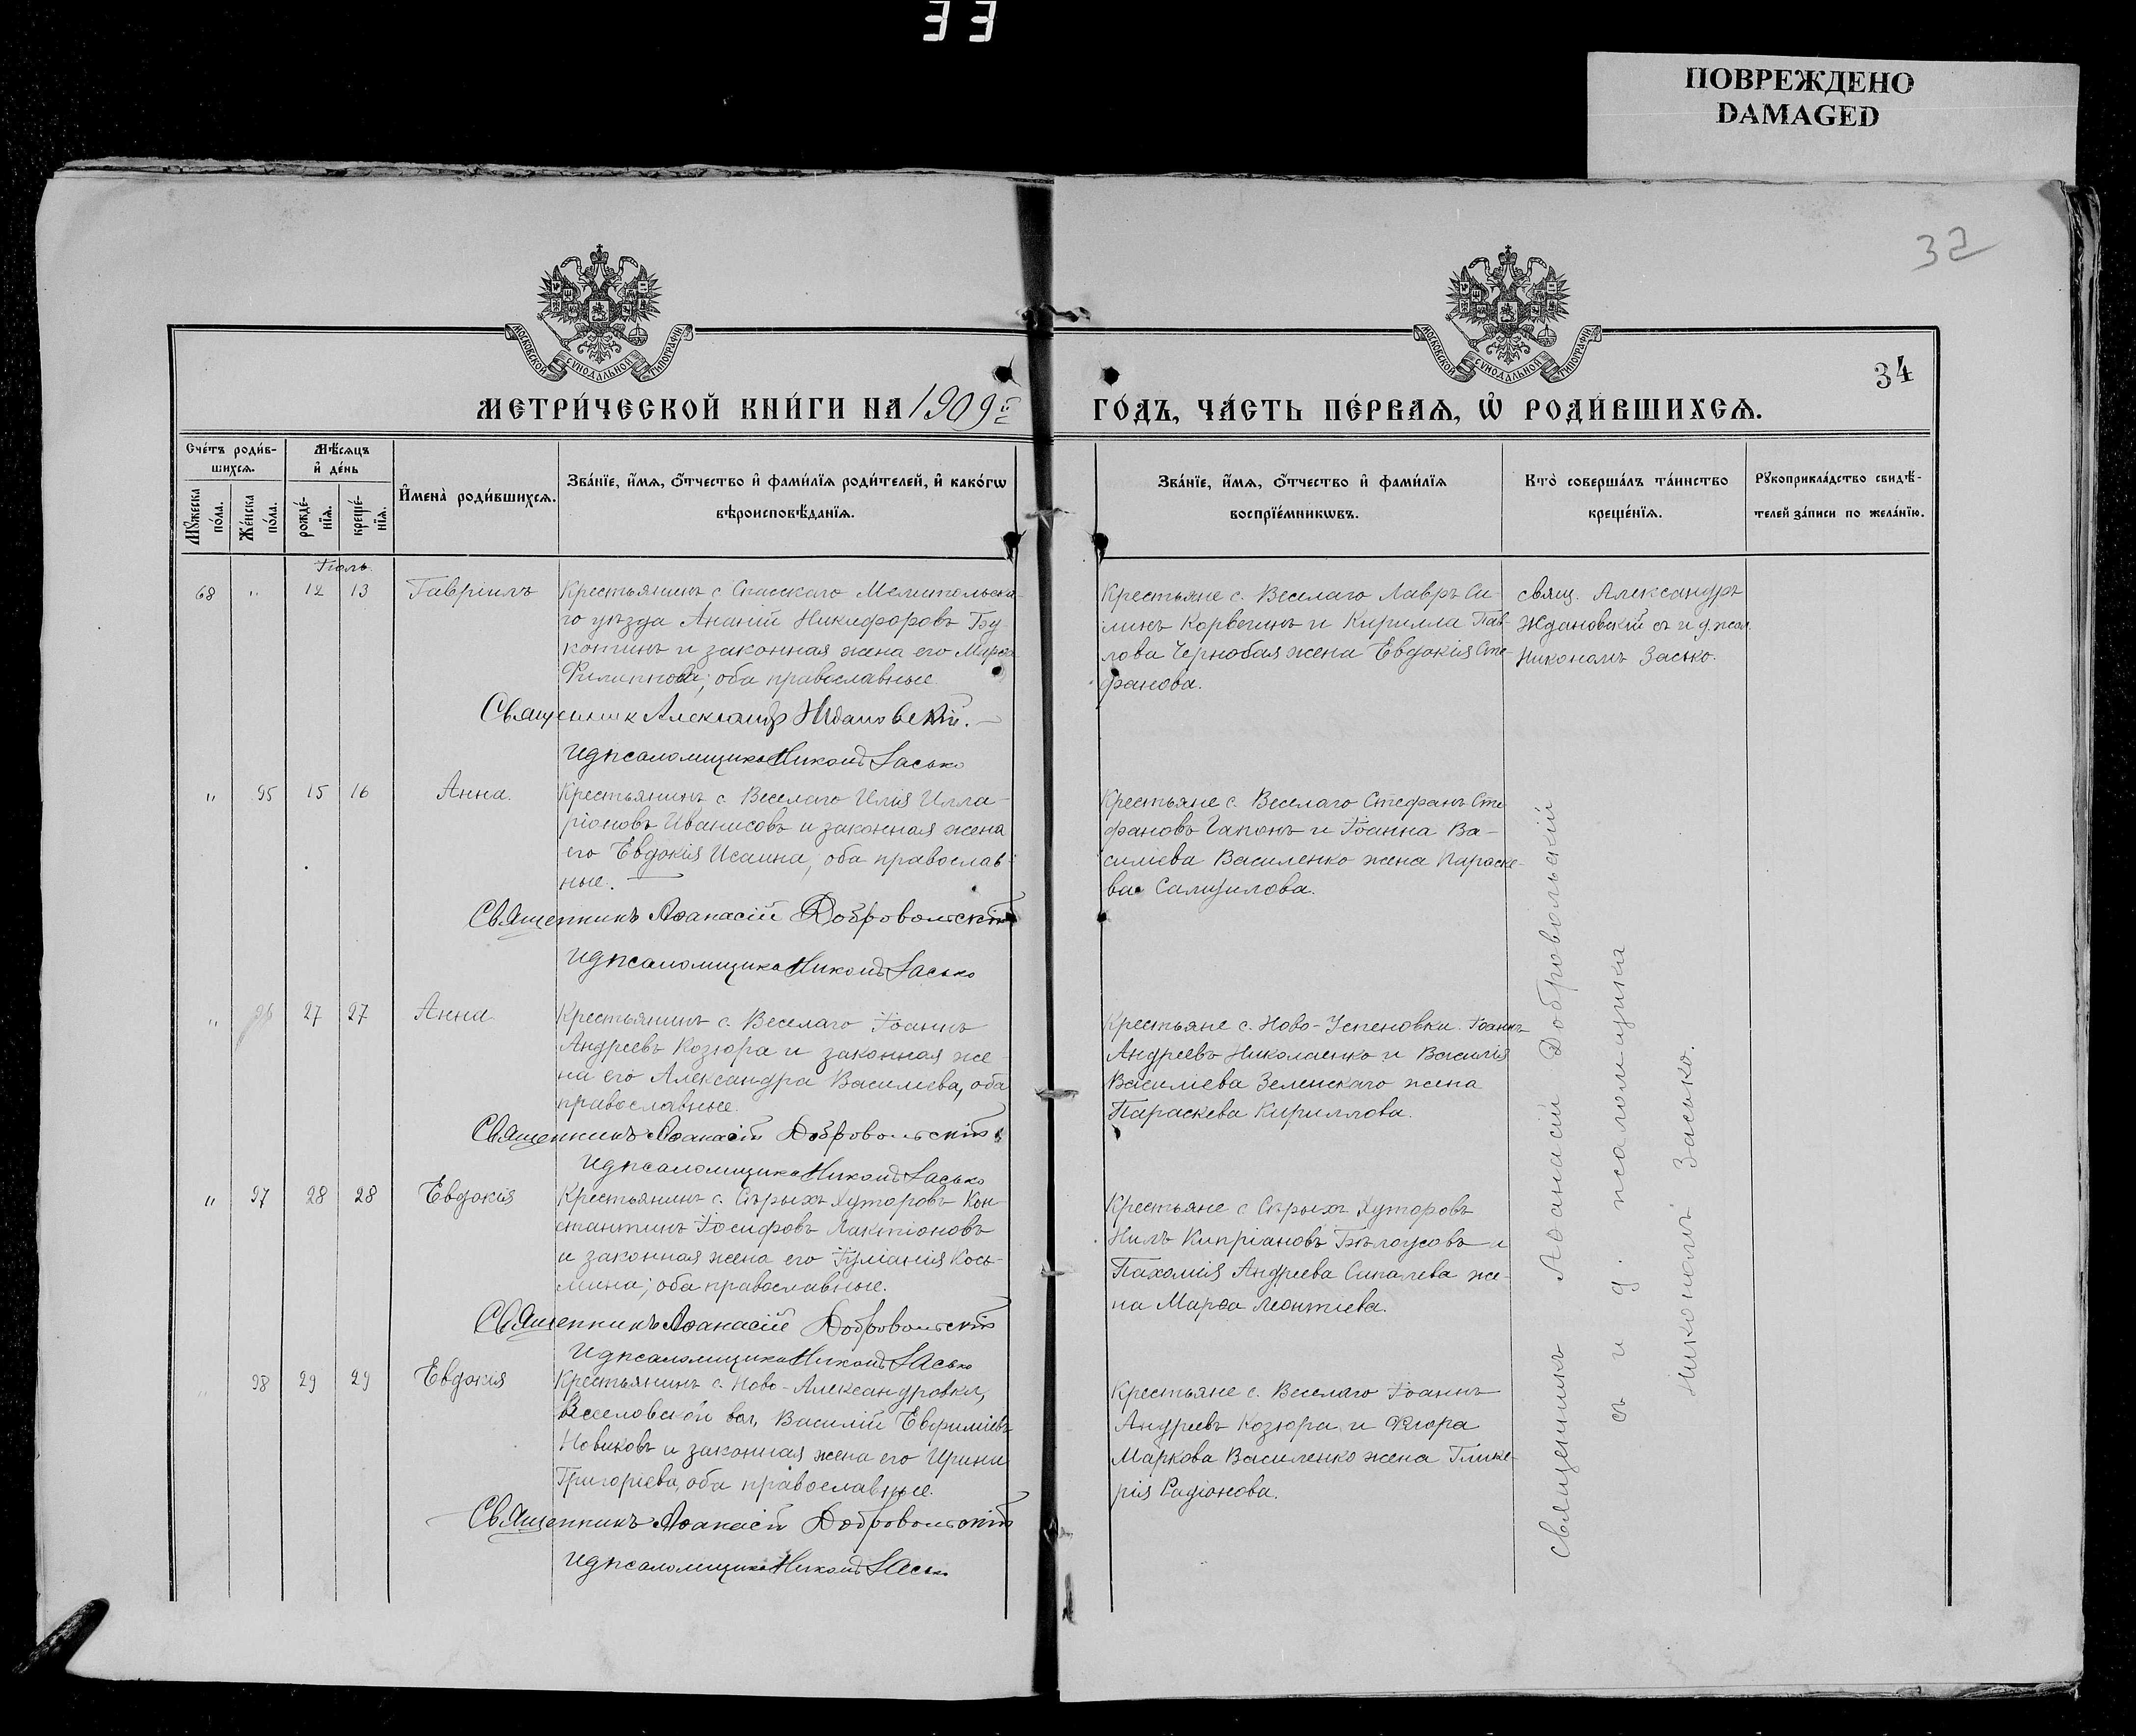 33
ПОВРЕЖДЕНО
DAMAGED
32
34
МОСКОВСКОЙ СУНОДАЛЬНОЙ ТИПОГРАФІИ
МОСКОВСКОЙ СУНОДАЛЬНОЙ ТИПОГРАФІИ
МЕТРИ́ЧЕСКОЙ КНИ́ГИ НА 1909й
ГО́ДЪ, ЧА́СТЬ ПЕ́РВАѦ, Ѡ РОДИ́ВШИХСѦ.
Сче́тъ роди́в-
шихсѧ.
Мꙋ́жеска
по́ла.
Же́нска
по́ла.
Мѣ́сѧцъ
и҆ де́нь
рожде́-
нїѧ.
креще́-
нїѧ.
И҆мена̀ роди́вшихсѧ.
Зва́нїе, и҆́мѧ, ѻ҆́тчество и҆ фами́лїѧ роди́телей, и҆ како́гѡ
вѣроисповѣ́данїѧ.
Зва́нїе, и҆́мѧ, ѻ҆́тчество и҆ фами́лїѧ
воспрїе́мникѡвъ.
Кто̀ соверша́лъ та́инство
креще́нїѧ.
Рꙋкоприкла́дство свидѣ́-
телей за́писи по жела́нїю.
Іюль.
68 " 12 13 Гавріилъ
Крестьянинъ с. Спасскаго Мелитопольска-
го уѣзда Ананій Никифоровъ Бу-
и законная жена его
Филиппова; оба православные.
Священник Александр Ждановскій.
И д псаломщика Никонъ Засько
Крестьяне с. Веселаго Лавръ Си-
линъ Корвегинъ и Кирилла Пав-
лова Чернобая жена Евдокія Сте-
фанова.
свящ. Александръ
Ждановскій съ и д псал.
Никономъ Засько.
" 95 15 16 Анна.
Крестьянинъ с. Веселаго Илія Илла-
ріоновъ Иванисовъ и законная жена
его Евдокія Исаина, оба православ-
ные.
Священникъ Аѳанасій Добровольскій
И д псаломщика Никонъ Засько
Крестьяне с. Веселаго Стефанъ Сте-
фановъ Гапонъ и Іоанна Ва-
силіева Василенко жена Параске-
ва Самуилова.
" 96 27 27 Анна
Крестьянинъ с. Веселаго Іоаннъ
Андреевъ Козюра и законная же-
на его Александра Василіева, оба
православные.
Священникъ Аѳанасій Добровольскій
И д псаломщика Никонъ Засько
Крестьяне с. Ново-Успеновки Іоаннъ
Андреевъ Николаенко и Василія
Василіева Зеленскаго жена
Параскева Кириллова.
" 97 28 28 Евдокія
Крестьянинъ с. Сѣрыхъ Хуторовъ Кон-
стантинъ Іосифовъ Лактіоновъ
и законная жена его Іуліанія Кось-
мина; оба православные.
Священникъ Аѳанасій Добровольскій
И д псаломщика Никонъ Засько
Крестьяне с. Сѣрыхъ Хуторовъ
Нилъ Кипріановъ Бѣлоусовъ и
Пахомія Андреева же-
на Марѳа Леонтіева.
" 98 29 29 Евдокія
Крестьянинъ с. Ново-Александровки,
Веселовской вол., Василій Евфиміевъ
Новиковъ и законная жена его Ирина
Григоріева, оба православные.
Священникъ Аѳанасій Добровольскій
И д псаломщика Никонъ Засько
Крестьяне с. Веселаго Іоаннъ
Андреевъ Козюра и
Маркова Василенко жена Глике-
рія Радіонова.
Священникъ Аѳанасій Добровольскій
съ и д. псаломщика
Никономъ Засько.